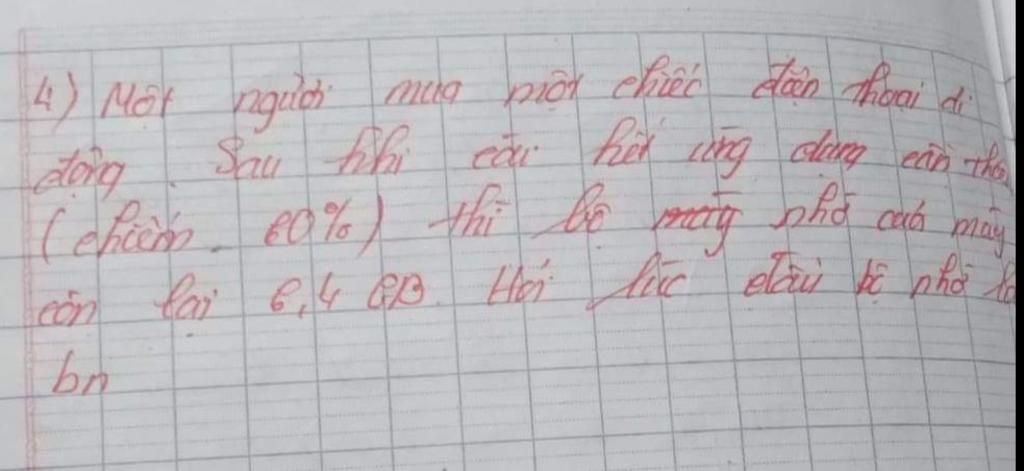 4) Một người mua một chiếc điện thoại di
động. Sau khi cài hết ứng dụng cần
(chiếm 60%) thì bộ máy nhớ của máy
còn lại 6,4 GB. Hỏi lúc đầu bộ nhớ
bn